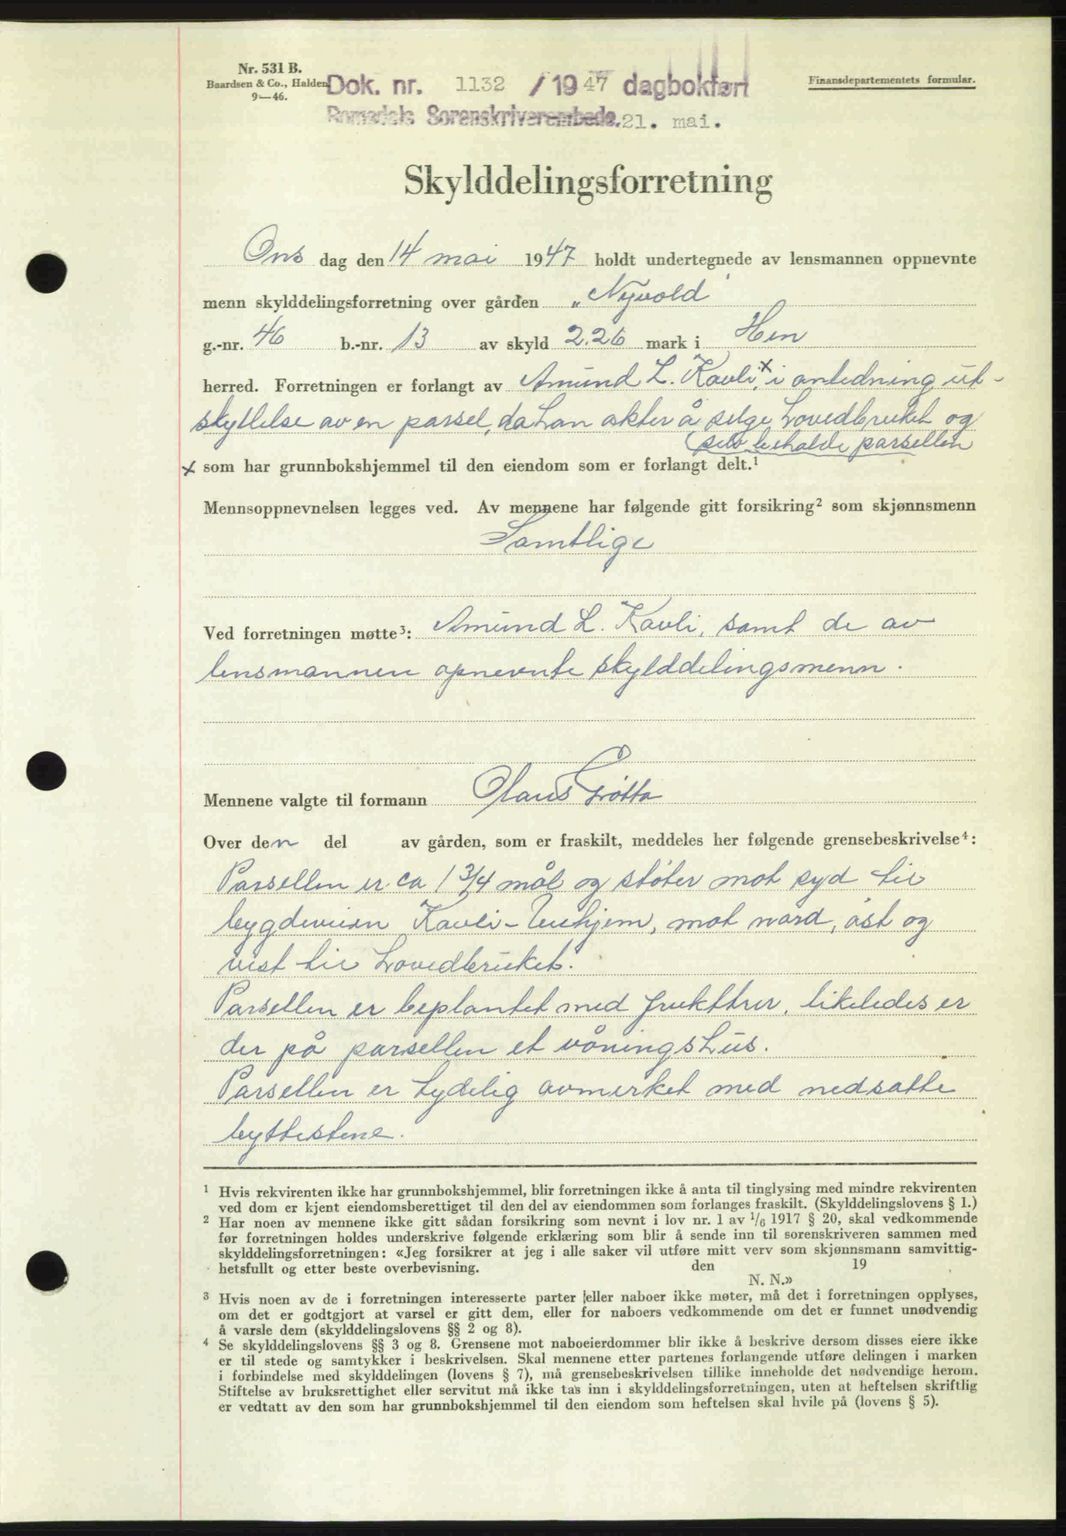 Nr. 531 B.
Baardsen & Co., Halden
9—46.
Dok. nr. 1132 / 1947 dagbokført
Romsdals Sorenskriverembede. 21. mai.
Finansdepartementets formular.
Skylddelingsforretning
Ons dag den 14 mai 1947 holdt undertegnede av lensmannen oppnevnte
menn skylddelingsforretning over gården „Nyvold"
g.-nr. 46 b.-nr. 13 av skyld 2.26 mark i Hen
herred. Forretningen er forlangt av Amund L. Kavli, x i anledning ut-
skyllelse av en parsel, da han akter å selge hovedbruket og
selv beholde parsellen
x som har grunnbokshjemmel til den eiendom som er forlangt delt.¹
Mennsoppnevnelsen legges ved. Av mennene har følgende gitt forsikring² som skjønnsmenn
Samtlige
Ved forretningen møtte³: Amund L. Kavli, samt de av
lensmannen opnevnte skylddelingsmenn.
Mennene valgte til formann Claus Grøtta
Over den del av gården, som er fraskilt, meddeles her følgende grensebeskrivelse⁴:
Parsellen er ca 1 3/4 mål og støter mot syd til
bygdeveien Kavli - , mot nord, øst og
vest til hovedbruket.
Parsellen er beplantet med frukttrær, likeledes er
der på parsellen et våningshus.
Parsellen er tydelig avmerket med nedsatte
byttestene.
¹ Hvis rekvirenten ikke har grunnbokshjemmel, blir forretningen ikke å anta til tinglysing med mindre rekvirenten
ved dom er kjent eiendomsberettiget til den del av eiendommen som forlanges fraskilt. (Skylddelingslovens § 1.)
² Har noen av mennene ikke gitt sådan forsikring som nevnt i lov nr. 1 av 1/6 1917 § 20, skal vedkommende
før forretningen holdes underskrive følgende erklæring som blir å sende inn til sorenskriveren sammen med
skylddelingsforretningen: «Jeg forsikrer at jeg i alle saker vil utføre mitt verv som skjønnsmann samvittig-
hetsfullt og etter beste overbevisning. den 19
N. N.»
³ Hvis noen av de i forretningen interesserte parter eller naboer ikke møter, må det i forretningen opplyses,
om det er godtgjort at varsel er gitt dem, eller for naboers vedkommende om det er funnet unødvendig
å varsle dem (skylddelingslovens §§ 2 og 8).
⁴ Se skylddelingslovens §§ 3 og 8. Grensene mot naboeierdommer blir ikke å beskrive dersom disses eiere ikke
er til stede og samtykker i beskrivelsen. Skal mennene etter partenes forlangende utføre delingen i marken
i forbindelse med skylddelingen (lovens § 7), må grensebeskrivelsen tillike inneholde det nødvendige herom.
Stiftelse av bruksrettighet eller servitut må ikke tas inn i skylddelingsforretningen, uten at heftelsen skriftlig
er vedtatt av den som har grunnbokshjemmel til den eiendom som heftelsen skal hvile på (lovens § 5).